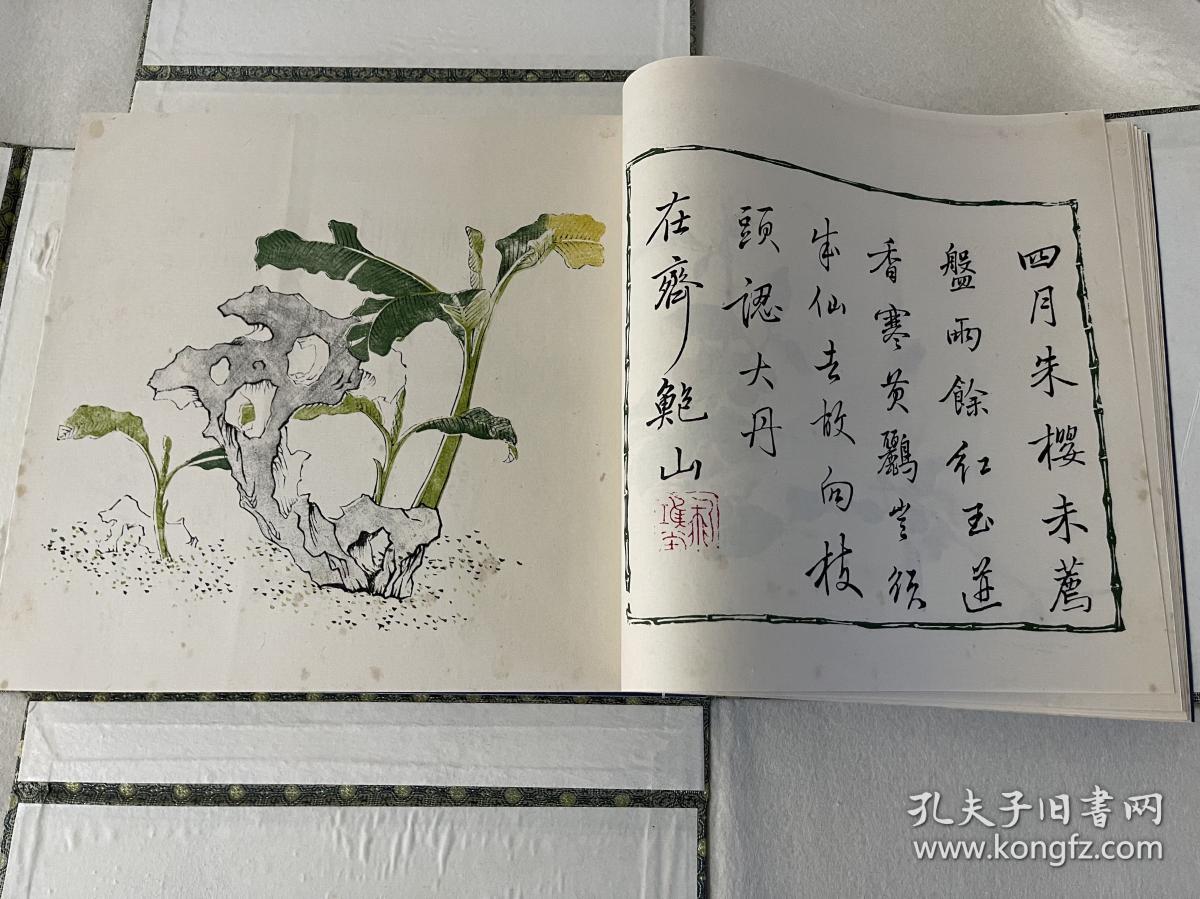 四月朱櫻未薦
盤雨餘紅玉迸
香寒黄鸝豈領
成仙去故向枝
頭認大丹
在齊鮑山
孔夫子旧書网
www.kongfz.com